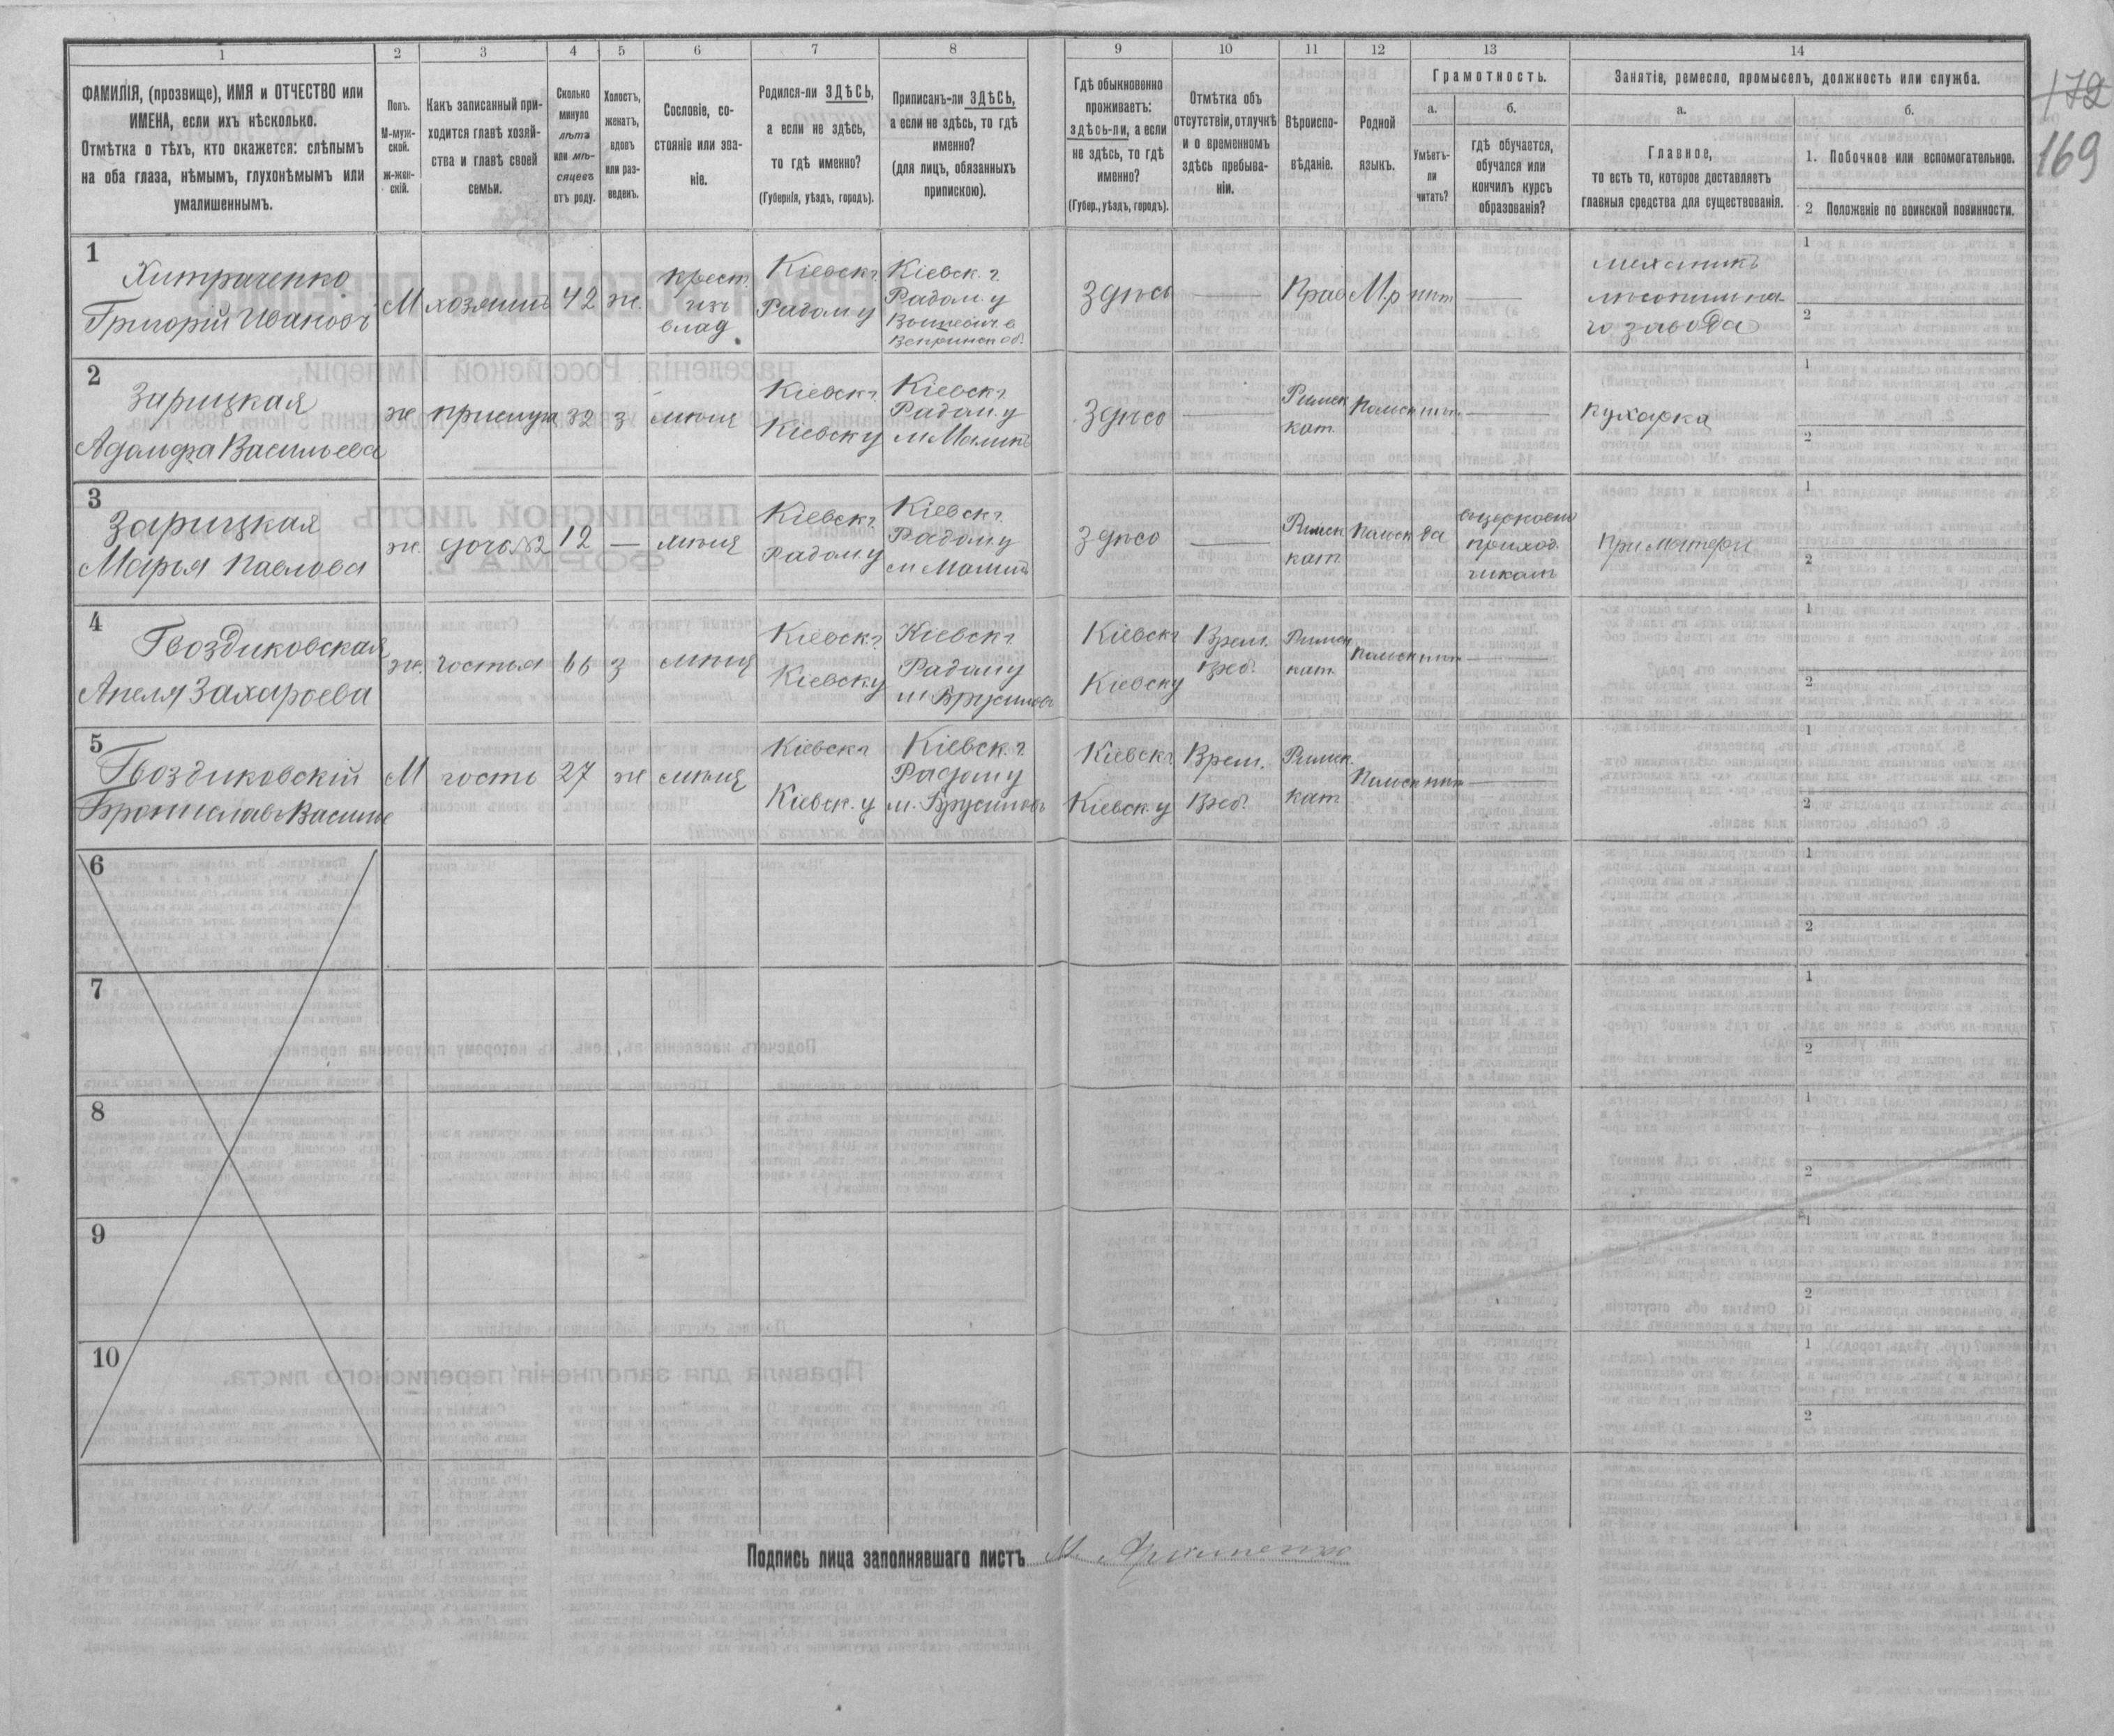 1 2 3 4 5 6 7 8 9 10 11 12 13 14
ФАМИЛІЯ, (прозвище), ИМЯ и ОТЧЕСТВО или
ИМЕНА, если ихъ нѣсколько.
Отмѣтка о тѣхъ, кто окажется: слѣпымъ
на оба глаза, нѣмымъ, глухонѣмымъ или
умалишеннымъ.
Полъ.
М-муж-
ской.
ж-жен-
скій.
Какъ записанный при-
ходится главѣ хозяй-
ства и главѣ своей
семьи.
Сколько
минуло
лѣтъ
или мѣ-
сяцевъ
отъ роду.
Холостъ,
женатъ,
вдовъ
или раз-
веденъ.
Сословіе, со-
стояніе или зва-
ніе.
Родился-ли ЗДѢСЬ,
а если не здѣсь,
то гдѣ именно?
(Губернія, уѣздъ, городъ).
Приписанъ-ли ЗДѢСЬ,
а если не здѣсь, то гдѣ
именно?
(для лицъ, обязанныхъ
припискою).
Гдѣ обыкновенно
проживаетъ:
здѣсь-ли, а если
не здѣсь, то гдѣ
именно?
(Губер., уѣздъ, городъ).
Отмѣтка объ
отсутствіи, отлучкѣ
и о временномъ
здѣсь пребыва-
ніи.
Вѣроиспо-
вѣданіе.
Родной
языкъ.
Грамотность.
а.
Умѣетъ-
ли
читать?
б.
гдѣ обучается,
обучался или
кончилъ курсъ
образованія?
Занятіе, ремесло, промыселъ, должность или служба.
а.
Главное,
то есть то, которое доставляетъ
главныя средства для существованія.
б.
1. Побочное или вспомогательное.
2 Положеніе по воинской повинности.
172
169
1
Хитраченко
Григорій Ивановъ
М хозяинъ 42 ж.
крест.
изъ
влад
Кіевск г.
Радом у
Кіевск. г.
Радом. у
Здѣсь — Прав М.р нѣт —
механикъ
го завода
1
2
2
Зарицкая
Адольфа Васильева
ж прислуга 32 з мѣщ
Кіевск г.
Кіевск у
Кіевск г.
Радом. у
м Малинъ
Здѣсь —
Римск
кат.
Польск нѣт —
кухарка
1
2
3
Зарицкая
Марья Павлова
ж. дочь №2 12 — мѣщ
Кіевск г.
Радом у
Кіевск г.
Радом. у
м Малинъ
Здѣсь —
Римск
кат.
Польск да
приход.
При матери
1
2
4
Гвоздиковская
Анеля Захарова
ж. гостья 66 з мѣщ
Кіевск г.
Кіевск у
Кіевск г
Радом у
м Брусиловъ
Кіевск г
Кіевск у
Врем.
Преб.
Римск
кат.
Польск нѣт —
1
2
5
Гвоздиковскій
Брониславъ Василье
М гость 27 ж мѣщ
Кіевск г
Кіевск. у
Кіевск. г.
Радом у
м. Брусиловъ
Кіевск г
Кіевск у
Врем.
Преб.
Римск.
кат
Польск нѣт —
1
2
6
1
2
7
1
2
8
1
2
9
1
2
10
1
2
Подпись лица заполнявшаго листъ